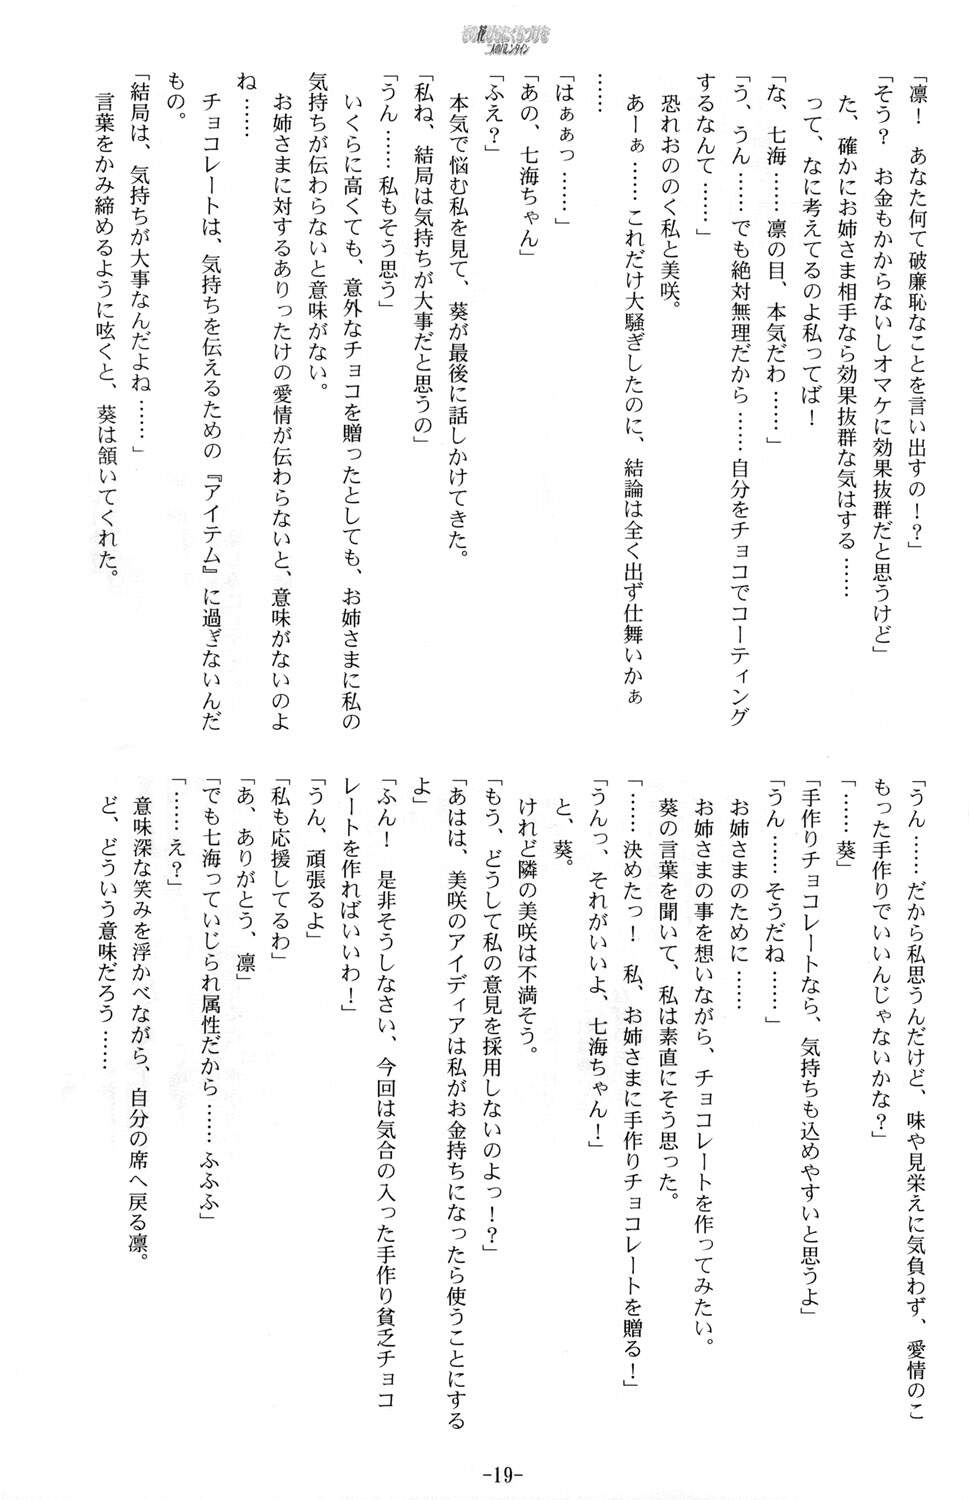 その花びらにくちづけを
「凛！　あなた何て破廉恥なことを言い出すの！？」
「そう？　お金もかからないしオマケに効果抜群だと思うけど」
　た、確かにお姉さま相手なら効果抜群な気はする……
　って、なに考えてるのよ私ってば！
「な、七海……凛の目、本気だわ……」
「う、うん……でも絶対無理だから……自分をチョコでコーティング
するなんて……」
　恐れおののく私と美咲。
　あーぁ……これだけ大騒ぎしたのに、結論は全く出ず仕舞いかぁ
……
「はぁぁっ……」
「あの、七海ちゃん」
「ふえ？」
　本気で悩む私を見て、葵が最後に話しかけてきた。
「私ね、結局は気持ちが大事だと思うの」
「うん……私もそう思う」
　いくらに高くても、意外なチョコを贈ったとしても、お姉さまに私の
気持ちが伝わらないと意味がない。
　お姉さまに対するありったけの愛情が伝わらないと、意味がないのよ
ね……
　チョコレートは、気持ちを伝えるための『アイテム』に過ぎないんだ
もの。
「結局は、気持ちが大事なんだよね……」
　言葉をかみ締めるように呟くと、葵は頷いてくれた。
「うん……だから私思うんだけど、味や見栄えに気負わず、愛情のこ
もった手作りでいいんじゃないかな？」
「……葵」
「手作りチョコレートなら、気持ちも込めやすいと思うよ」
「うん……そうだね……」
　お姉さまのために……
　お姉さまの事を想いながら、チョコレートを作ってみたい。
　葵の言葉を聞いて、私は素直にそう思った。
「……決めたっ！　私、お姉さまに手作りチョコレートを贈る！」
「うんっ、それがいいよ、七海ちゃん！」
　と、葵。
　けれど隣の美咲は不満そう。
「もう、どうして私の意見を採用しないのよっ！？」
「あはは、美咲のアイディアは私がお金持ちになったら使うことにする
よ」
「ふん！　是非そうしなさい、今回は気合の入った手作り貧乏チョコ
レートを作ればいいわ！」
「うん、頑張るよ」
「私も応援してるわ」
「あ、ありがとう、凛」
「でも七海っていじられ属性だから……ふふふ」
「……え？」
　意味深な笑みを浮かべながら、自分の席へ戻る凛。
　ど、どういう意味だろう……
-19-